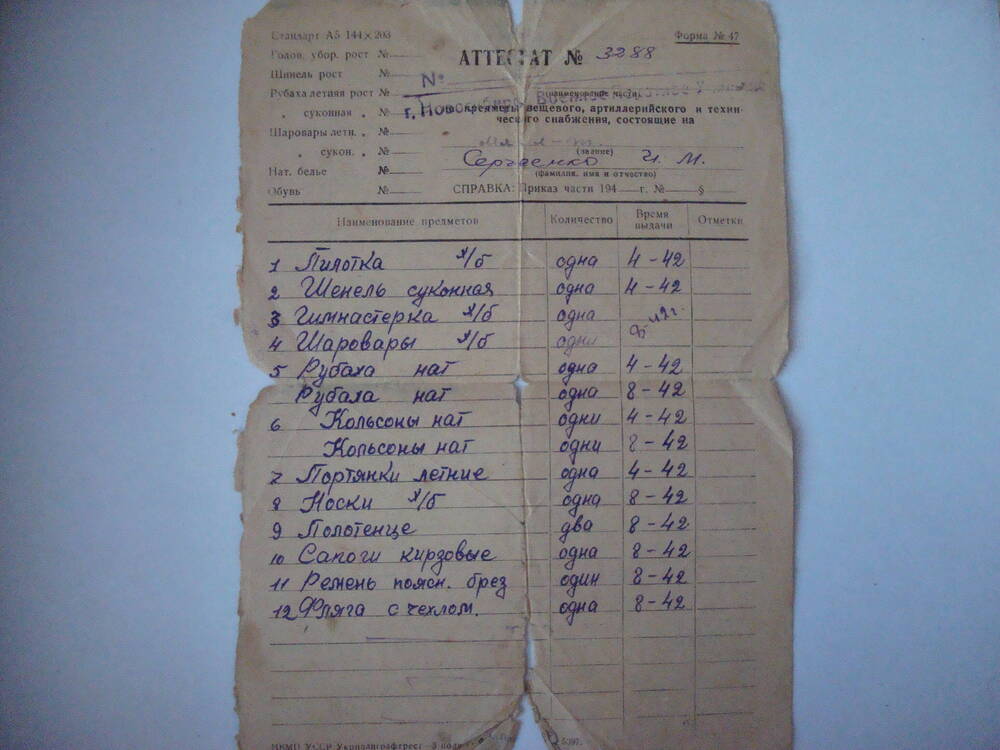 Стандарт А5 144×203
Форма № 47
Голов. убор. рост №
АТТЕСТАТ № 3288
Шинель рост №
Рубаха летняя рост №
(наименование части)
„ суконная „ №
г. Новосибирск
предметы вещевого, артиллерийского и техни-
ческого снабжения, состоящие на
Шаровары летн. „ №
„ сукон. „ №
(звание)
Сергиенко И. М.
Нат. белье №
(фамилия, имя и отчество)
Обувь №
СПРАВКА: Приказ части 194 г. № §
Наименование предметов Количество Время выдачи Отметки
1 Пилотка х/б одна 4-42
2 Шенель суконная одна 4-42
3 Гимнастерка х/б одна
4 Шаровары х/б одни
5 Рубаха нат одна 4-42
Рубаха нат одна 8-42
6 Кольсоны нат одни 4-42
Кольсоны нат одни 8-42
7 Портянки летние одна 4-42
8 Носки х/б одна 8-42
9 Полотенце два 8-42
10 Сапоги кирзовые одна 8-42
11 Ремень поясн. брез один 8-42
12 Фляга с чехлом. одна 8-42
УССР Укрполиграфтрест